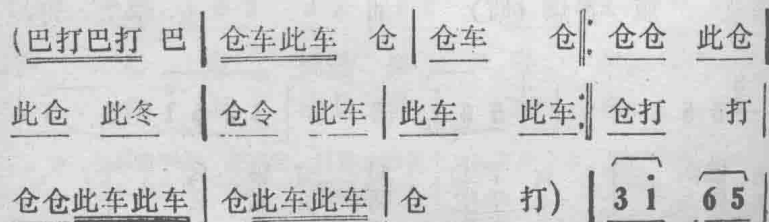 (巴打巴打 巴 | 仓车此车 仓 | 仓车 仓 ‖: 仓仓 此仓 |
此仓 此冬 | 仓令 此车 | 此车 此车 :‖ 仓打 打 |
仓仓此车此车 | 仓此车此车 | 仓 打) | 3 i 6 5 |